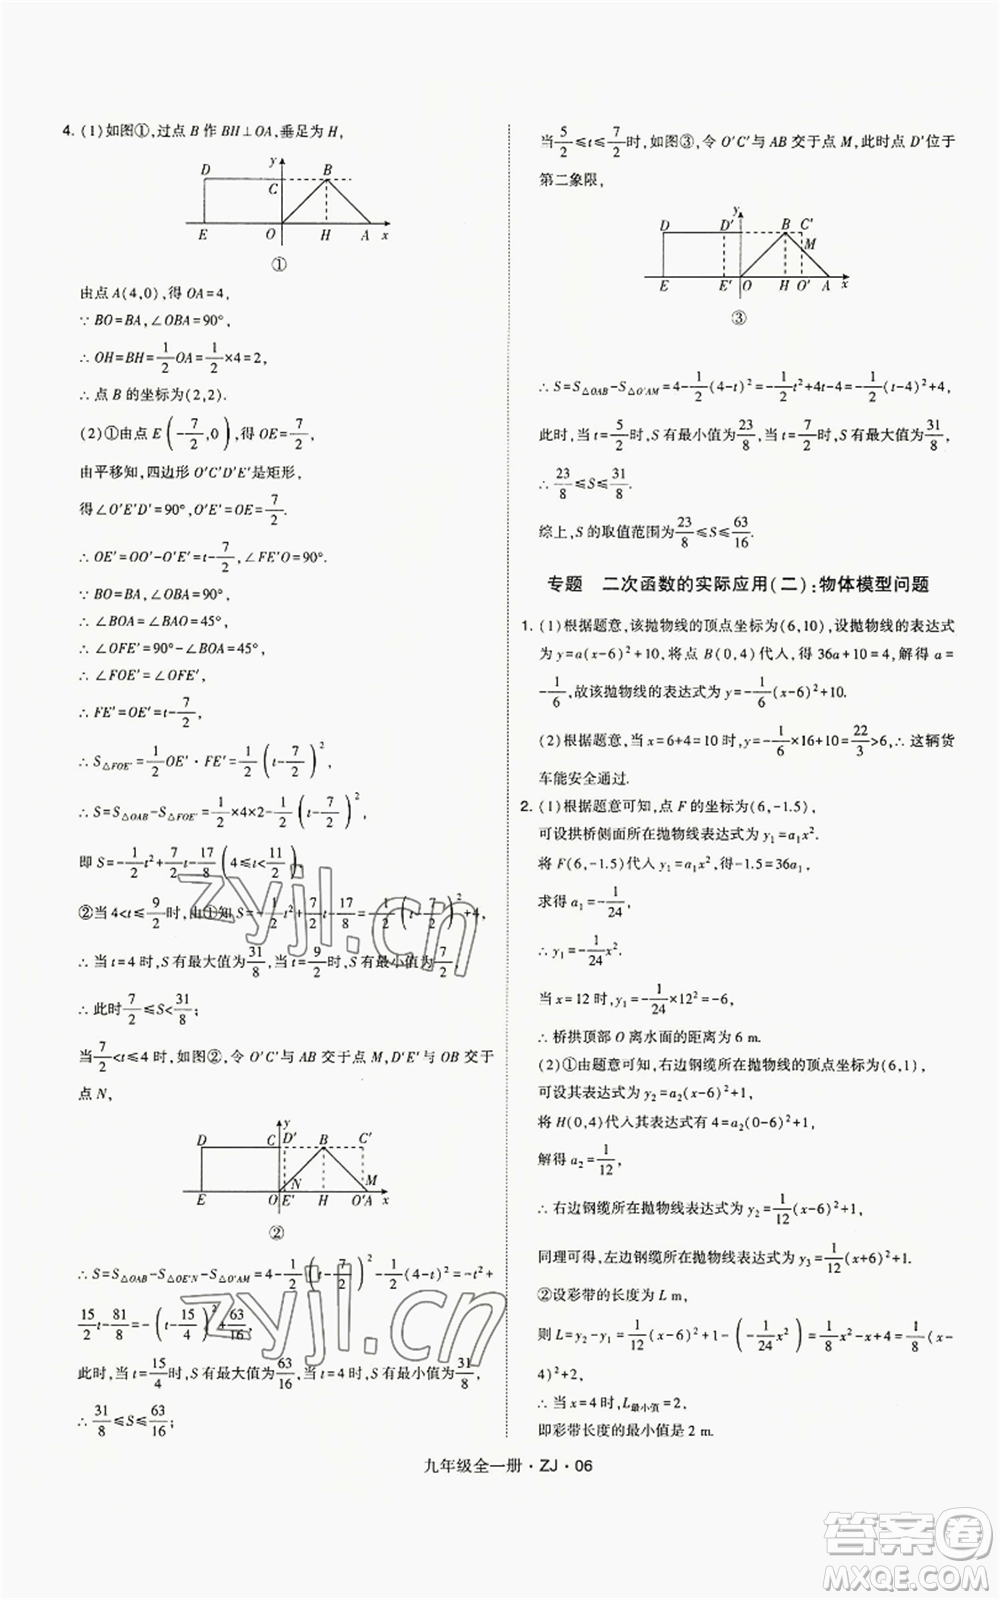 4. (1)如图①,过点 B 作 BH⊥OA,垂足为 H,
y
D C B
E O H A x
①
由点 A(4,0),得 OA=4,
∵ BO=BA,∠OBA=90°,
∴ OH=BH=1/2 OA=1/2×4=2,
∴ 点 B 的坐标为(2,2).
(2)①由点 E(-7/2,0),得 OE=7/2,
由平移知,四边形 O′C′D′E′是矩形,
得∠O′E′D′=90°,O′E′=OE=7/2.
∴ OE′=OO′-O′E′=t-7/2,∠FE′O=90°.
∵ BO=BA,∠OBA=90°,
∴ ∠BOA=∠BAO=45°,
∴ ∠OFE′=90°-∠BOA=45°,
∴ ∠FOE′=∠OFE′,
∴ FE′=OE′=t-7/2,
∴ S△FOE′=1/2 OE′·FE′=1/2(t-7/2)²,
∴ S=S△OAB-S△FOE′=1/2×4×2-1/2(t-7/2)²,
即 S=-1/2t²+7/2t-17/8(4≤t<11/2).
②当 4<t≤9/2时,由①知 S=-1/2t²+7/2t-17/8=-1/2(t-7/2)²+4,
∴ 当 t=4 时,S 有最大值为31/8,当 t=9/2时,S 有最小值为7/2,
∴ 此时7/2≤S<31/8;
当7/2<t≤4 时,如图②,令 O′C′与 AB 交于点 M,D′E′与 OB 交于
点 N,
y
D C D′ B C′
N M
E O E′ H O′ A x
②
∴ S=S△OAB-S△OE′N-S△O′AM=4-1/2(t-7/2)²-1/2(4-t)²=-t²+
15/2t-81/8=-(t-15/4)²+63/16,
此时,当 t=15/4时,S 有最大值为63/16,当 t=4 时,S 有最小值为31/8,
∴ 31/8≤S≤63/16;
当5/2≤t≤7/2时,如图③,令 O′C′与 AB 交于点 M,此时点 D′位于
第二象限,
y
D D′ B C′
M
E E′ O H O′ A x
③
∴ S=S△OAB-S△O′AM=4-1/2(4-t)²=-1/2t²+4t-4=-1/2(t-4)²+4,
此时,当 t=5/2时,S 有最小值为23/8,当 t=7/2时,S 有最大值为31/8,
∴ 23/8≤S≤31/8.
综上,S 的取值范围为23/8≤S≤63/16.
专题 二次函数的实际应用(二):物体模型问题
1. (1)根据题意,该抛物线的顶点坐标为(6,10),设抛物线的表达式
为 y=a(x-6)²+10,将点 B(0,4)代入,得 36a+10=4,解得 a=
-1/6,故该抛物线的表达式为 y=-1/6(x-6)²+10.
(2)根据题意,当 x=6+4=10 时,y=-1/6×16+10=22/3>6,∴ 这辆货
车能安全通过.
2. (1)根据题意可知,点 F 的坐标为(6,-1.5),
可设拱桥侧面所在抛物线表达式为 y₁=a₁x².
将 F(6,-1.5)代入 y₁=a₁x²,得-1.5=36a₁,
求得 a₁=-1/24,
∴ y₁=-1/24x².
当 x=12 时,y₁=-1/24×12²=-6,
∴ 桥拱顶部 O 离水面的距离为 6 m.
(2)①由题意可知,右边钢缆所在抛物线的顶点坐标为(6,1),
可设其表达式为 y₂=a₂(x-6)²+1,
将 H(0,4)代入其表达式有 4=a₂(0-6)²+1,
解得 a₂=1/12,
∴ 右边钢缆所在抛物线表达式为 y₂=1/12(x-6)²+1,
同理可得,左边钢缆所在抛物线表达式为 y₃=1/12(x+6)²+1.
②设彩带的长度为 L m,
则 L=y₂-y₁=1/12(x-6)²+1-(-1/24x²)=1/8x²-x+4=1/8(x-
4)²+2,
∴ 当 x=4 时,L最小值=2,
即彩带长度的最小值是 2 m.
九年级全一册·ZJ·06
zyjl.cn
zyjl.cn
答案卷
MXQE.COM